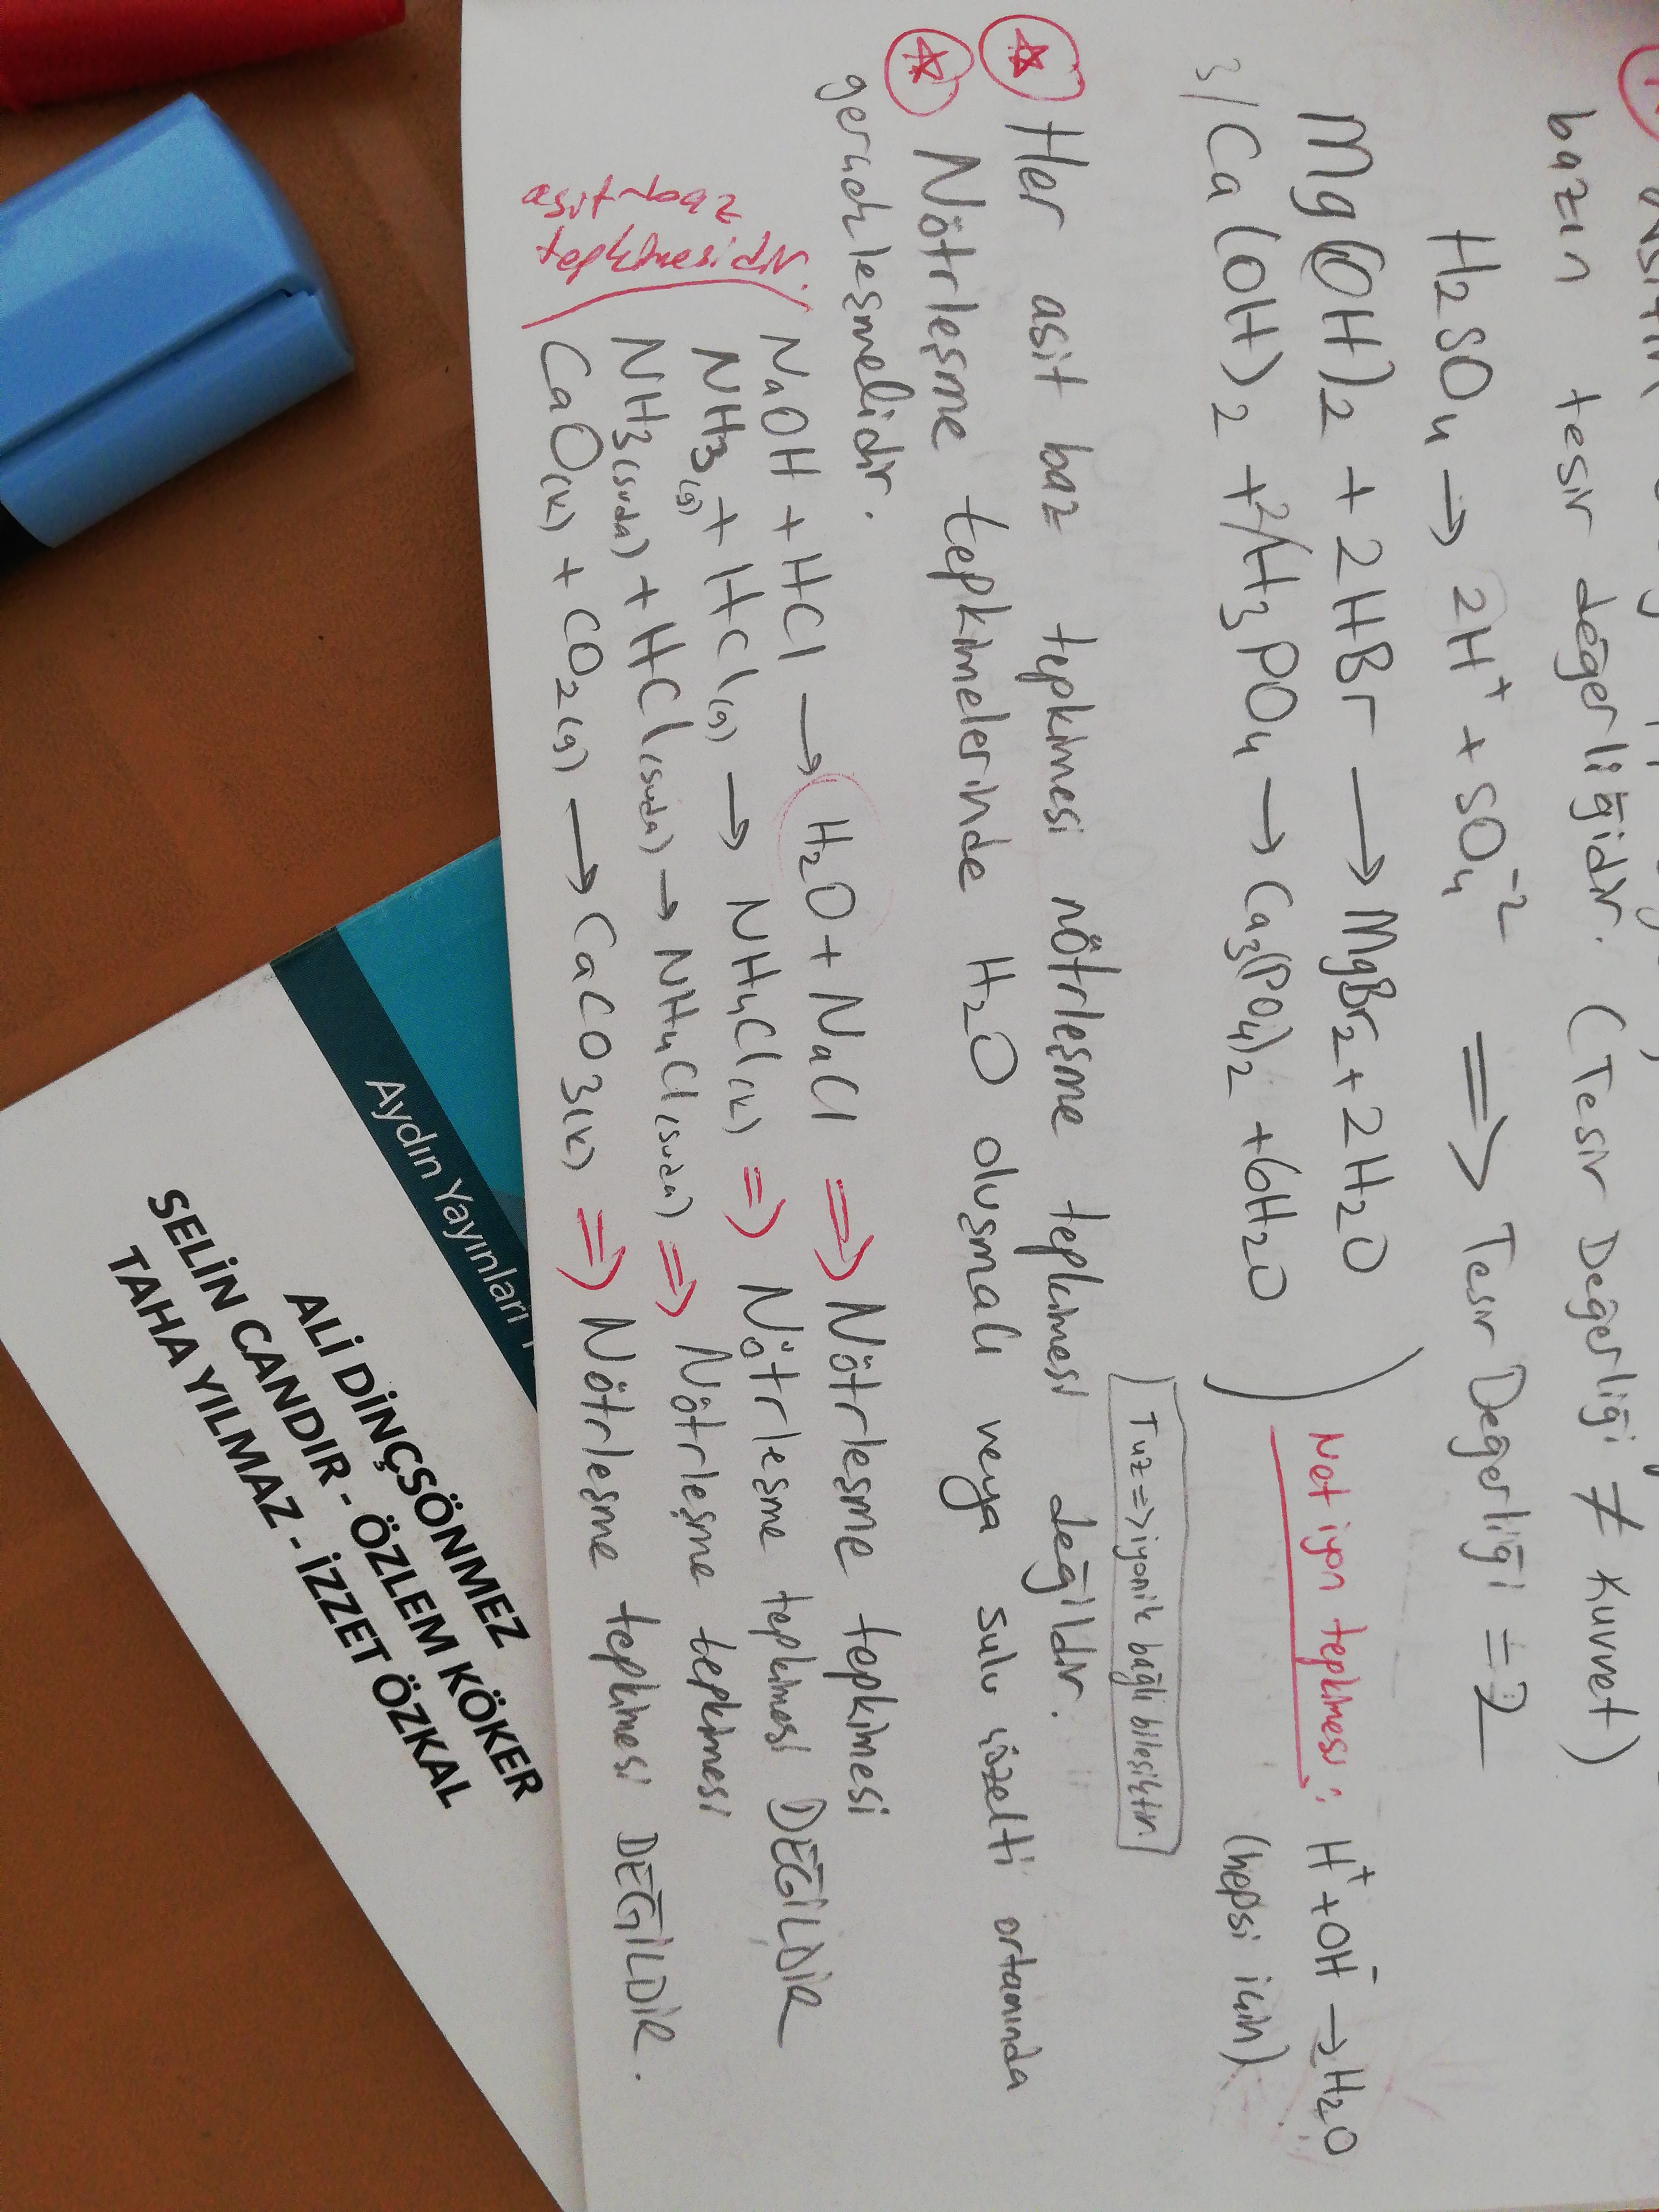 bazın tesir değerliğidir. (Tesir Değerliği ≠ Kuvvet)
H₂SO₄ → 2H⁺ + SO₄⁻² ⟹ Tesir Değerliği = 2
Mg(OH)₂ + 2HBr → MgBr₂ + 2H₂O
3/Ca(OH)₂ + 2/H₃PO₄ → Ca₃(PO₄)₂ + 6H₂O
Net iyon tepkimesi: H⁺ + OH⁻ → H₂O
(hepsi için)
Tuz => iyonik bağlı bileşiktir.
Her asit baz tepkimesi nötrleşme tepkimesi değildir.
Nötrleşme tepkimelerinde H₂O oluşmalı veya sulu çözelti ortamında
gerçekleşmelidir.
NaOH + HCl → H₂O + NaCl => Nötrleşme tepkimesi
NH₃(g) + HCl(g) → NH₄Cl(k) => Nötrleşme tepkimesi DEĞİLDİR
NH₃(suda) + HCl(suda) → NH₄Cl(suda) => Nötrleşme tepkimesi
CaO(k) + CO₂(g) → CaCO₃(k) => Nötrleşme tepkimesi DEĞİLDİR.
asit-baz
tepkimesidir.
Aydın Yayınları
ALİ DİNÇSÖNMEZ
SELİN CANDIR - ÖZLEM KÖKER
TAHA YILMAZ - İZZET ÖZKAL